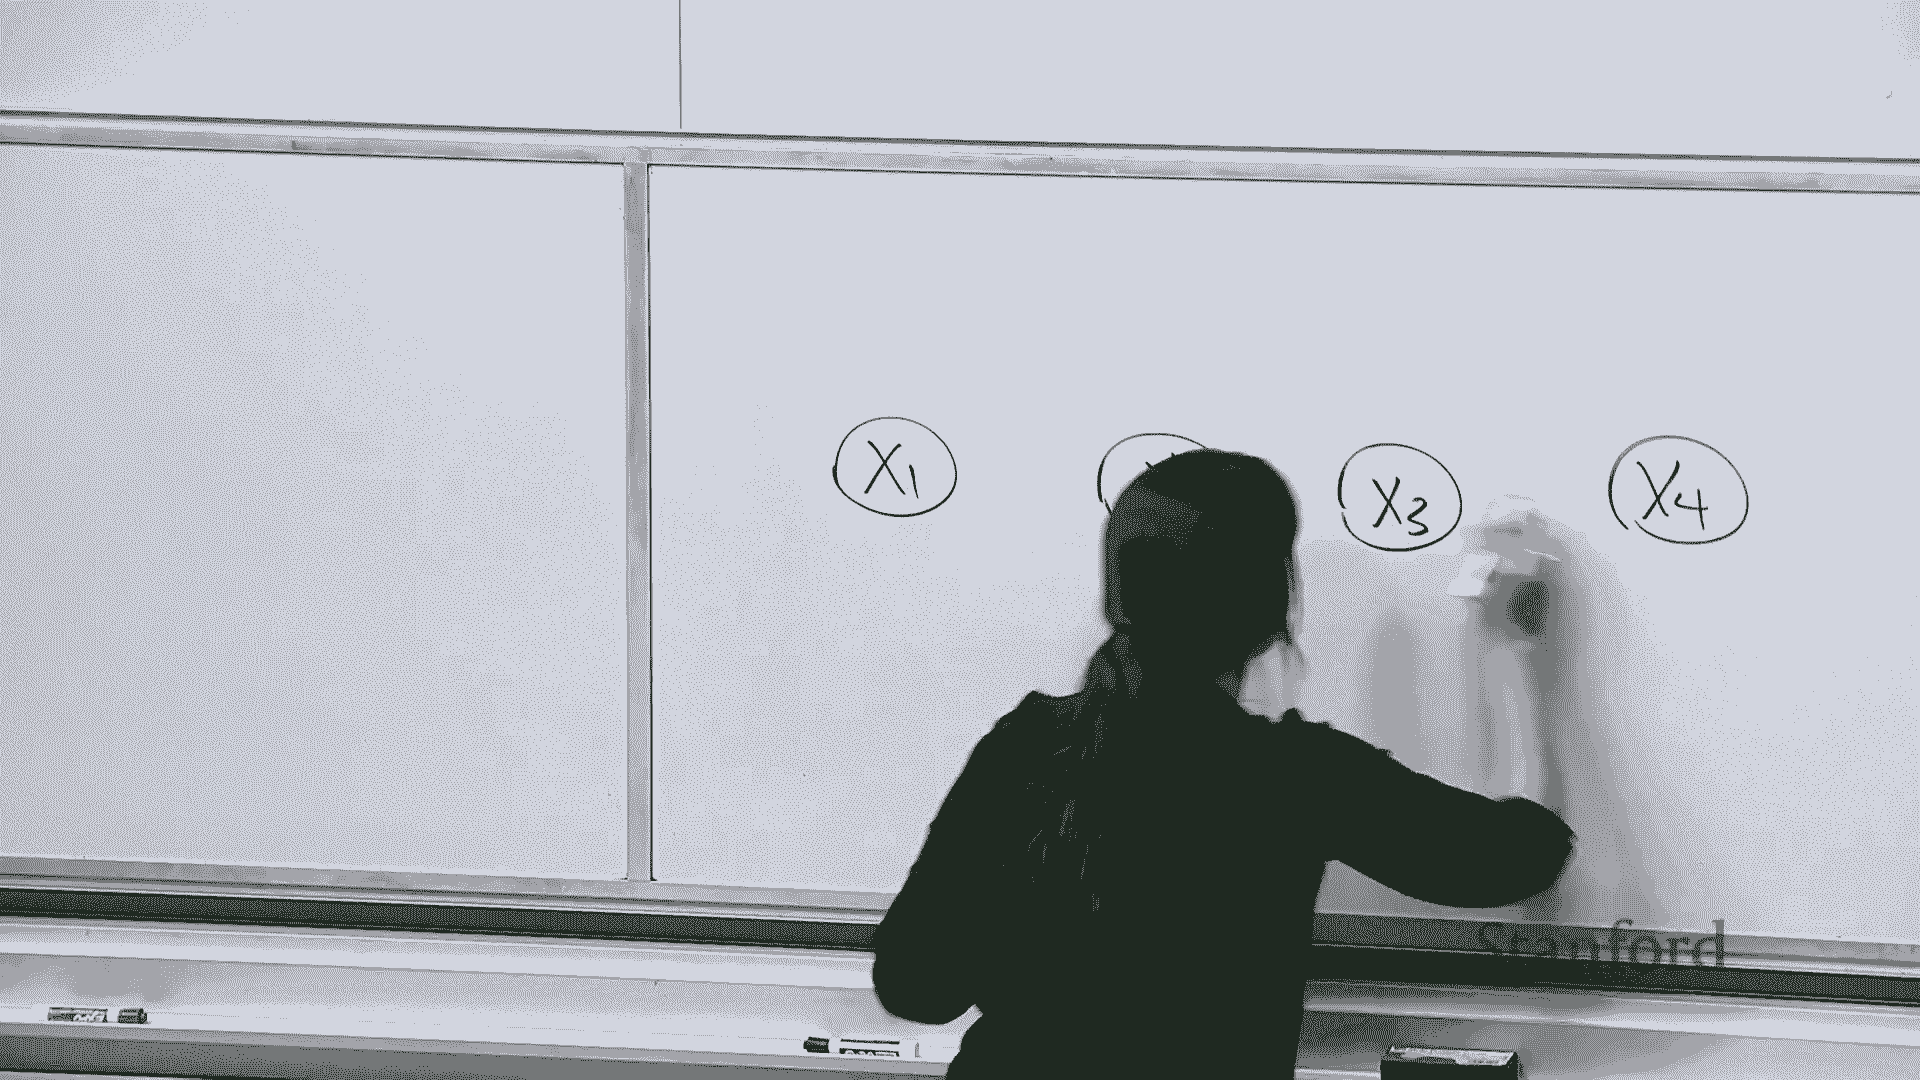 X1 X3 X4
Stanford